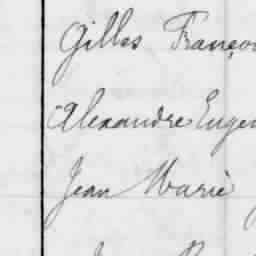 Gilles Franço
Alexandre Eugè
Jean Marie